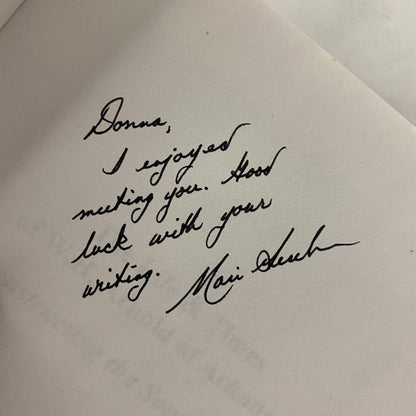 Donna,
I enjoyed
meeting you. Good
luck with your
writing.
Mari